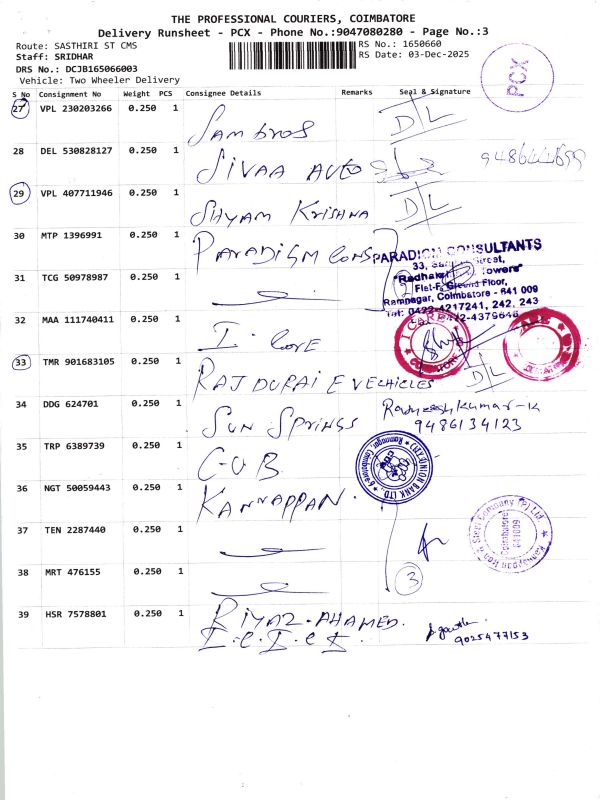 THE PROFESSIONAL COURIERS, COIMBATORE
Delivery Runsheet - PCX - Phone No.:9047080280 - Page No.:3
Route: SASTHIRI ST CMS
Staff: SRIDHAR
DRS No.: DCJB165066003
Vehicle: Two Wheeler Delivery
RS No.: 1650660
RS Date: 03-Dec-2025
PCX
S No Consignment No Weight PCS Consignee Details Remarks Seal & Signature
27 VPL 230203266 0.250 1 Sam bros D/L
28 DEL 530828127 0.250 1 SIVAA AUTO
29 VPL 407711946 0.250 1 SHYAM KRISHNA D/L
30 MTP 1396991 0.250 1 PARADIGM CONS
PARADIGM CONSULTANTS
33, Street,
"Radha Towers"
Flat-F, Ground Floor,
Ramnagar, Coimbatore - 641 009
Tel: 0422-4217241, 242, 243
2
31 TCG 50978987 0.250 1
32 MAA 111740411 0.250 1 I. CARE
I CARE
COIMBATORE
33 TMR 901683105 0.250 1 RAJDURAI E VEHICLES D/L
34 DDG 624701 0.250 1 SUN SPRINGS Rajneesh Kumar-K
9486134123
35 TRP 6389739 0.250 1 C-U-B
UNION BANK LTD.
36 NGT 50059443 0.250 1 KANNAPPAN.
Kannappan Iron & Steel Company (P) Ltd.
Coimbatore
641009
37 TEN 2287440 0.250 1
38 MRT 476155 0.250 1
3
39 HSR 7578801 0.250 1 RIYAZ-AHAMED.
I.C.I.C.I
9025477153